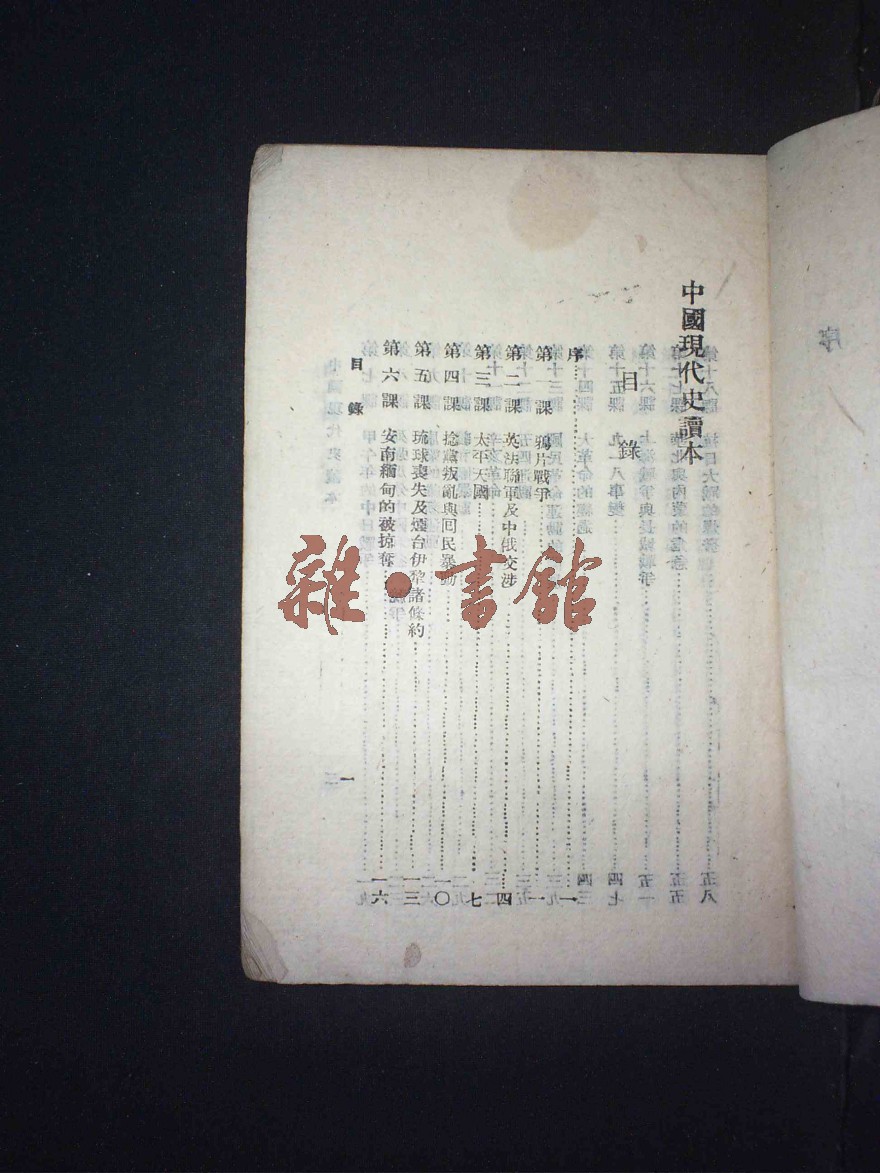 中國現代史讀本
目錄
序……一
第一課 鴉片戰爭……一
第二課 英法聯軍及中俄交涉……四
第三課 太平天國……七
第四課 捻黨叛亂與回民暴動……一〇
第五課 琉球喪失及煙台伊犂諸條約……一三
第六課 安南緬甸的被掠奪……一六
目錄
一
雜·書館
序